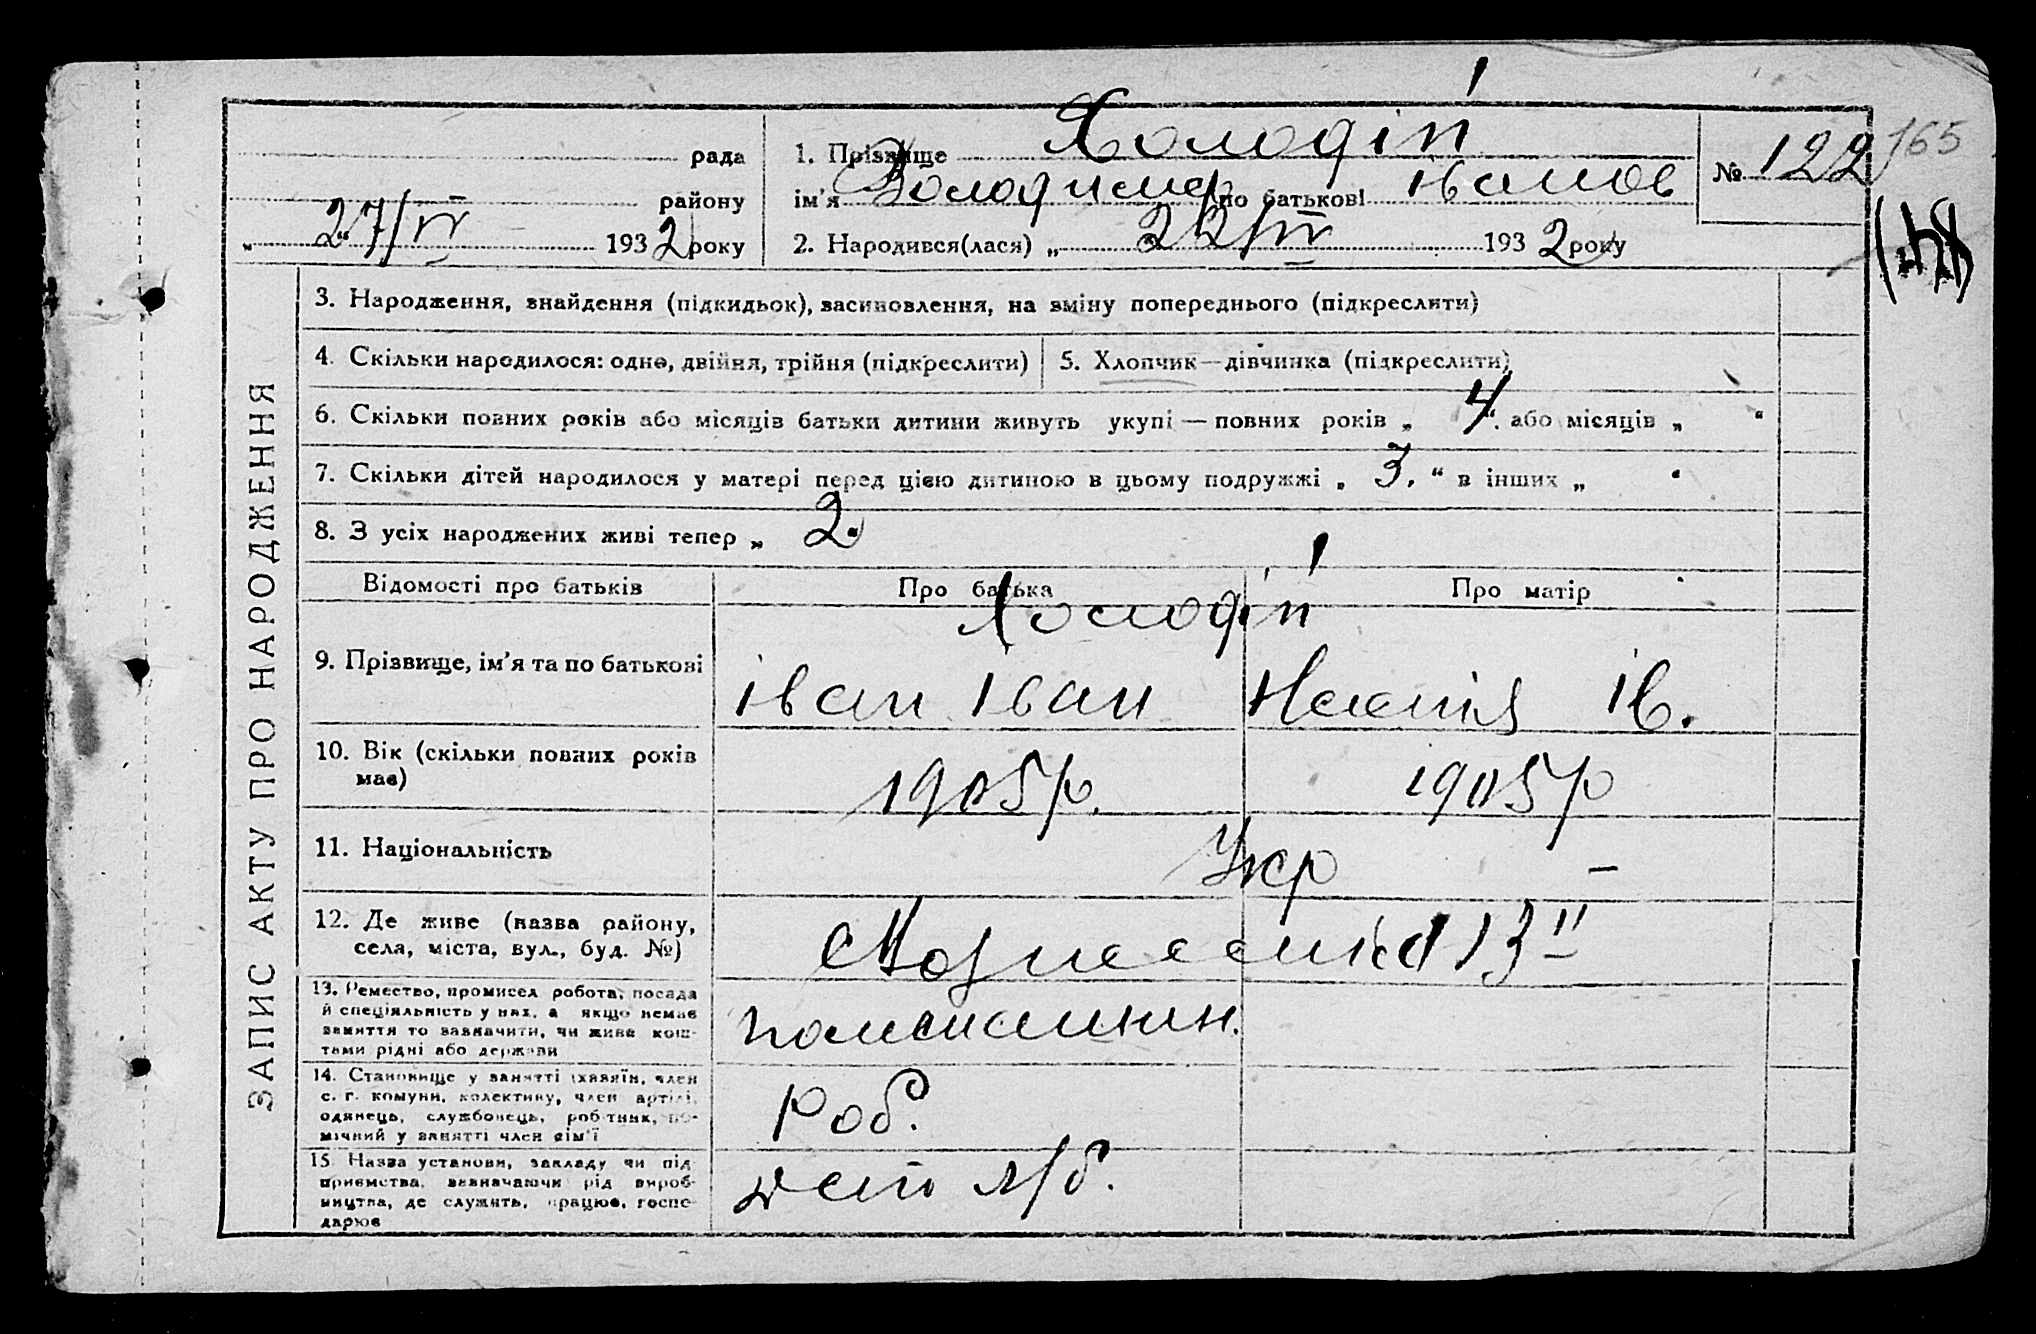 рада
району
„ 27/IV 1932 року
1. Прізвище Холодій
ім'я Володимир по батькові Іванов
2. Народився(лася) „ 22/IV 1932 року
№ 122
165
ЗАПИС АКТУ ПРО НАРОДЖЕННЯ
3. Народження, знайдення (підкидьок), засиновлення, на зміну попереднього (підкреслити)
4. Скільки народилося: одне, двійня, трійня (підкреслити)
5. Хлопчик—дівчинка (підкреслити)
6. Скільки повних років або місяців батьки дитини живуть укупі — повних років „ 4 “. або місяців „ “
7. Скільки дітей народилося у матері перед цією дитиною в цьому подружжі „ 3. “ в інших „ “
8. З усіх народжених живі тепер „ 2.
Відомості про батьків
Про батька
Про матір
9. Прізвище, ім'я та по батькові
Холодій
Іван Іван
Ів.
10. Вік (скільки повних років
має)
1905 р.
1905 р
11. Національність
Укр –
12. Де живе (назва району,
села, міста, вул., буд. №)
13
13. Ремество, промисел робота, посада
й спеціяльність у них, а якщо немає
заняття то зазначити, чи живе кош-
тами рідні або держави
14. Становище у занятті (хазяїн, член
с. г. комуни, колективу, член артілі,
одинець, службовець, робітник, по-
мічний у занятті член сім'ї
Роб.
15 Назва установи, закладу чи під
приємства, зазначаючи рід вироб-
ництва, де служить, працює, госпо-
дарює